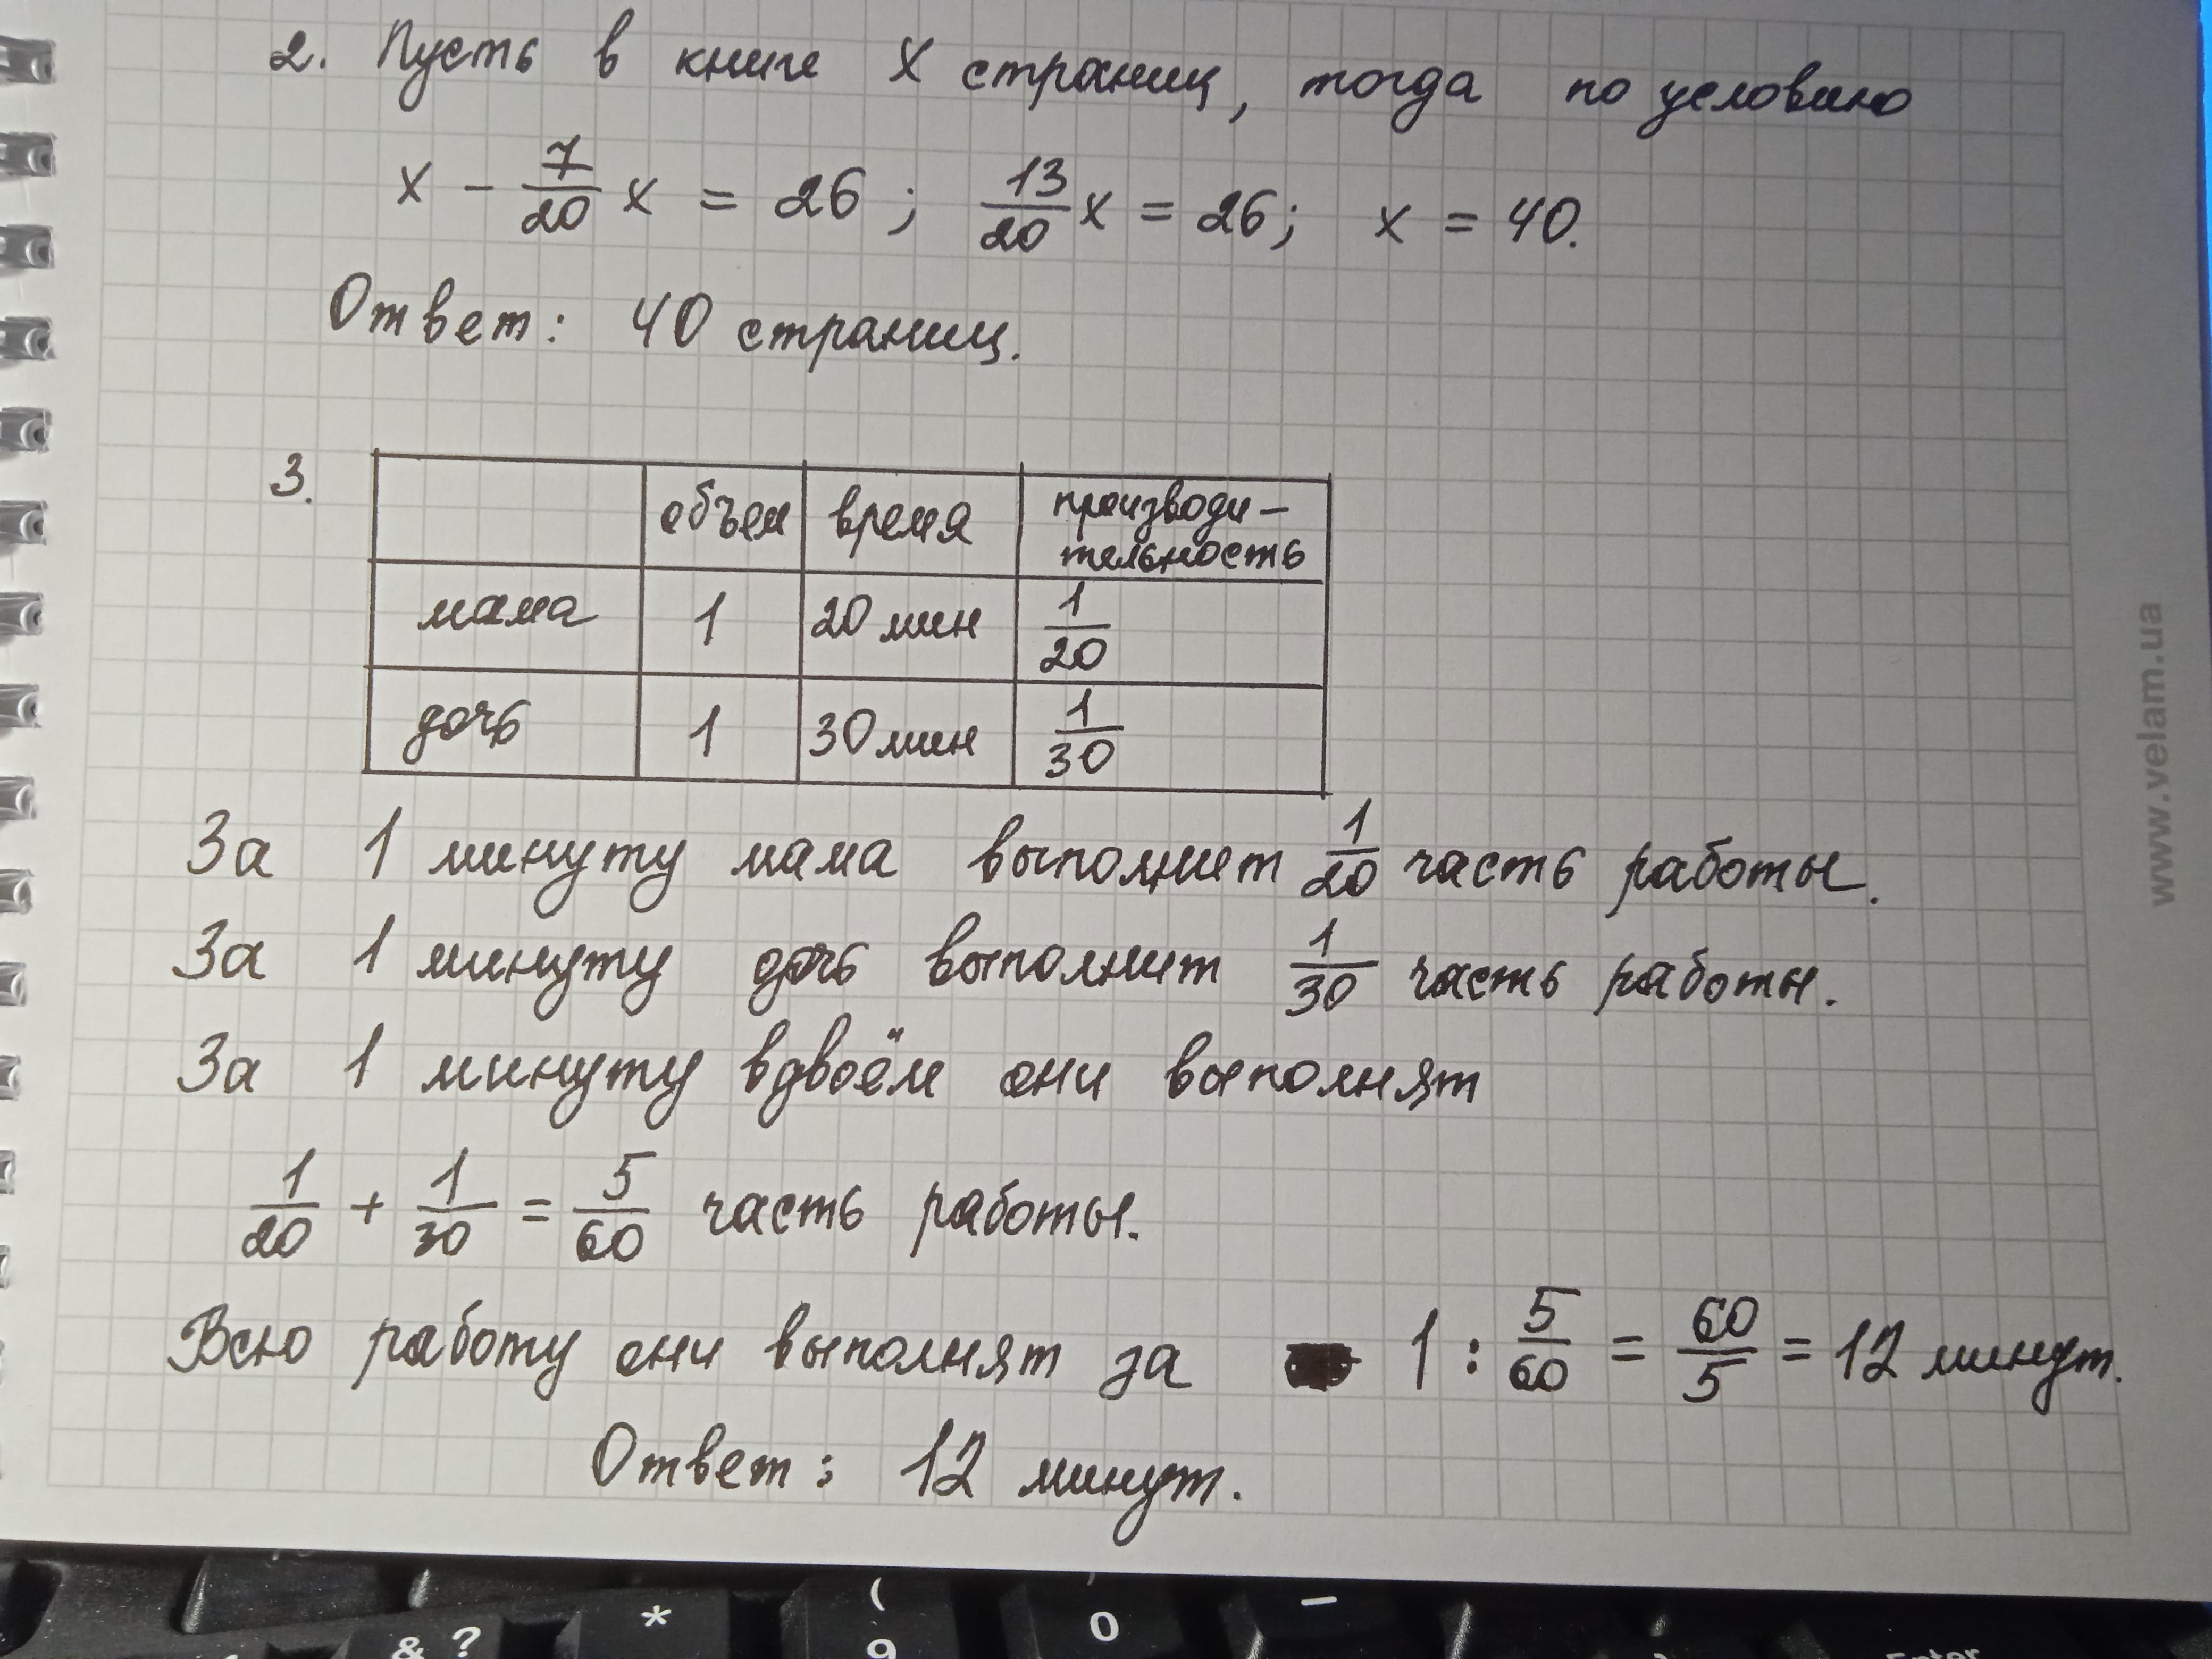 2. Пусть в книге x страниц, тогда по условию
x - 7/20 x = 26; 13/20 x = 26; x = 40.
Ответ: 40 страниц.
3.
объем время производи-
тельность
мама 1 20 мин 1/20
дочь 1 30 мин 1/30
За 1 минуту мама выполнит 1/20 часть работы.
За 1 минуту дочь выполнит 1/30 часть работы.
За 1 минуту вдвоём они выполнят
1/20 + 1/30 = 5/60 часть работы.
Всю работу они выполнят за 1 : 5/60 = 60/5 = 12 минут.
Ответ: 12 минут.
www.velam.ua
& ? * ( 9 0 –